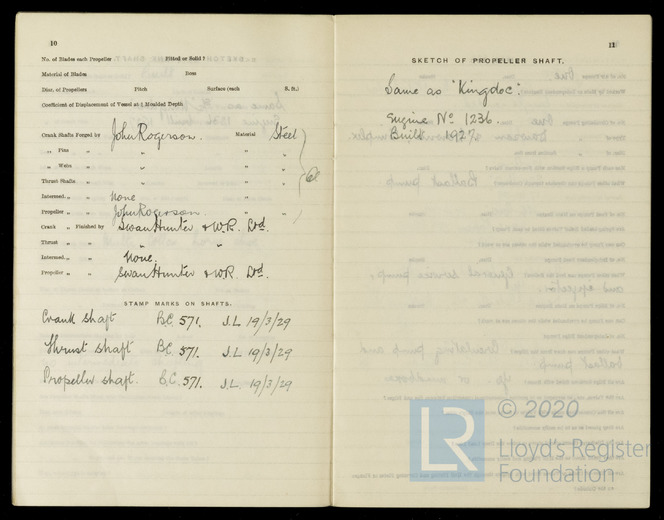 10
No. of Blades each Propeller Fitted or Solid ?
Material of Blades Boss
Diar. of Propellers Pitch Surface (each S. ft.)
Coefficient of Displacement of Vessel at ½ Moulded Depth
Crank Shafts Forged by John Rogerson. Material Steel
„ Pins „ „ „ „
„ Webs „ „ „ „
Thrust Shafts „ „ „ „
Intermed... „ „ none „
Propeller „ „ John Rogerson. „ „
Crank „ Finished by Swan Hunter & W.R. Ltd.
Thrust „ „ „ „
Intermed... „ „ None.
Propeller „ „ Swan Hunter & WR. Ltd.
STAMP MARKS ON SHAFTS.
Crank shaft B.C. 571. J.L 19/3/29
Thrust shaft B.C. 571. J.L 19/3/29
Propeller shaft. B.C. 571. J.L. 19/3/29
11
SKETCH OF PROPELLER SHAFT.
Same as "Kingdoc".
Engine No 1236.
Built 1927.
LR
© 2020
Lloyd's Register
Foundation